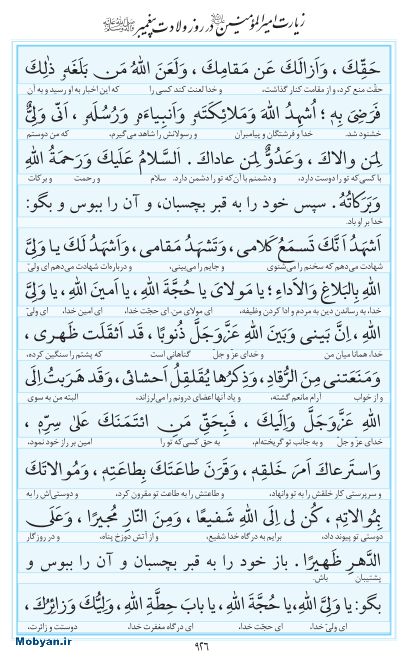 زیارت امیرالمؤمنین در روز ولادت پیغمبر
حَقِّكَ، وَاَزالَكَ عَن مَقامِكَ، وَلَعَنَ اللهُ مَن بَلَغَهُ ذٰلِكَ
حقّت منع کرد، و از مقامت کنار گذاشت، و خدا لعنت کند کسی را که این اخبار به او رسید و به آن
فَرَضِىَ بِهِ؛ اُشهِدُ اللهَ وَمَلائِكَتَهُ وَاَنبِياءَهُ وَرُسُلَهُ، اَنّى وَلِىٌّ
خشنود شد. خدا و فرشتگان و پیامبران و رسولانش را شاهد می‌گیرم، که من دوستم
لِمَن والاكَ، وَعَدُوٌّ لِمَن عاداكَ. اَلسَّلامُ عَلَيكَ وَرَحمَةُ اللهِ
با کسی‌که تو را دوست دارد، و دشمنم با آن‌که تو را دشمن دارد. سلام و رحمت و برکات
وَبَرَكاتُهُ. سپس خود را به قبر بچسبان، و آن را ببوس و بگو:
خدا بر او باد.
اَشهَدُ اَنَّكَ تَسمَعُ كَلامى، وَتَشهَدُ مَقامى، وَاَشهَدُ لَكَ يا وَلِىَّ
شهادت می‌دهم که سخنم را می‌شنوی و جایم را می‌بینی، و درباره‌ات شهادت می‌دهم ای ولیّ
اللهِ بِالبَلاغِ وَالاَداءِ؛ يا مَولاىَ يا حُجَّةَ اللهِ، يا اَمينَ اللهِ، يا وَلِىَّ
خدا، به رساندن دین به مردم و ادا کردن وظیفه، ای مولای من، ای حجّت خدا، ای امین خدا، ای ولیّ
اللهِ، اِنَّ بَينى وَبَينَ اللهِ عَزَّوَجَلَّ ذُنوبًا، قَد اَثقَلَت ظَهرى،
خدا، همانا میان من و خدای عزّ و جلّ گناهانی است که پشتم را سنگین کرده،
وَمَنَعَتنى مِنَ الرُّقادِ، وَذِكرُها يُقَلقِلُ اَحشائى، وَقَد هَرَبتُ اِلَى
و از خواب آرام مانعم گشته، و یاد آنها اعضای درونم را می‌لرزاند، البته من به سوی
اللهِ عَزَّوَجَلَّ وَاِلَيكَ، فَبِحَقِّ مَنِ ائتَمَنَكَ عَلىٰ سِرِّهِ،
خدای عزّ و جلّ و به جانب تو گریخته‌ام، به حق کسی‌که تو را امین بر راز خود نمود،
وَاستَرعاكَ اَمرَ خَلقِهِ، وَقَرَنَ طاعَتَكَ بِطاعَتِهِ، وَمُوالاتَكَ
و سرپرستی کار خلقش را به تو وانهاد، و طاعتش را به طاعت تو مقرون کرد، و دوستی‌اش را به
بِمُوالاتِهِ، كُن لى اِلَى اللهِ شَفيعًا، وَمِنَ النّارِ مُجيرًا، وَعَلَى
دوستی تو پیوند داد، برایم به درگاه خدا شفیع، و از آتش دوزخ پناه، و در روزگار
الدَّهرِ ظَهيرًا. باز خود را به قبر بچسبان و آن را ببوس و
پشتیبان باش.
بگو: يا وَلِىَّ اللهِ، يا حُجَّةَ اللهِ، يا بابَ حِطَّةِ اللهِ، وَلِيُّكَ وَزائِرُكَ،
ای ولیّ خدا، ای حجّت خدا، ای در گاه مغفرت خدا، دوستت و زائرت،
Mobyan.ir
۹۲۶